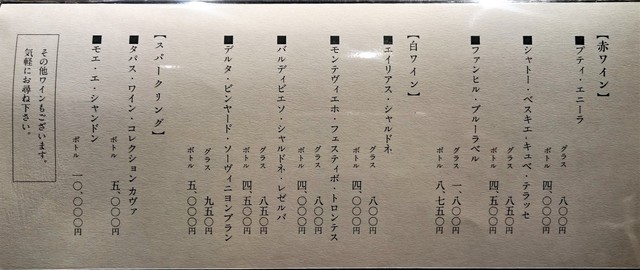 【赤ワイン】
■プティ・エニーラ
グラス 八〇〇円
ボトル 四、〇〇〇円
■シャトー・ペスキエ・キュベ・テラッセ
グラス 八五〇円
ボトル 四、五〇〇円
■ファンヒル・ブルーラベル
グラス 一、八〇〇円
ボトル 八、七五〇円
【白ワイン】
■エイリアス・シャルドネ
グラス 八〇〇円
ボトル 四、〇〇〇円
■モンテヴィエホ・フェスティボ・トロンテス
グラス 八〇〇円
ボトル 四、〇〇〇円
■バルディビエソ・シャルドネ・レゼルバ
グラス 八五〇円
ボトル 四、五〇〇円
■デルタ・ビンヤード・ソーヴィニヨンブラン
グラス 九五〇円
ボトル 五、〇〇〇円
【スパークリング】
■タパス・ワイン・コレクションカヴァ
ボトル 五、〇〇〇円
■モエ・エ・シャンドン
ボトル 一〇、〇〇〇円
その他ワインもございます。
気軽にお尋ね下さい。